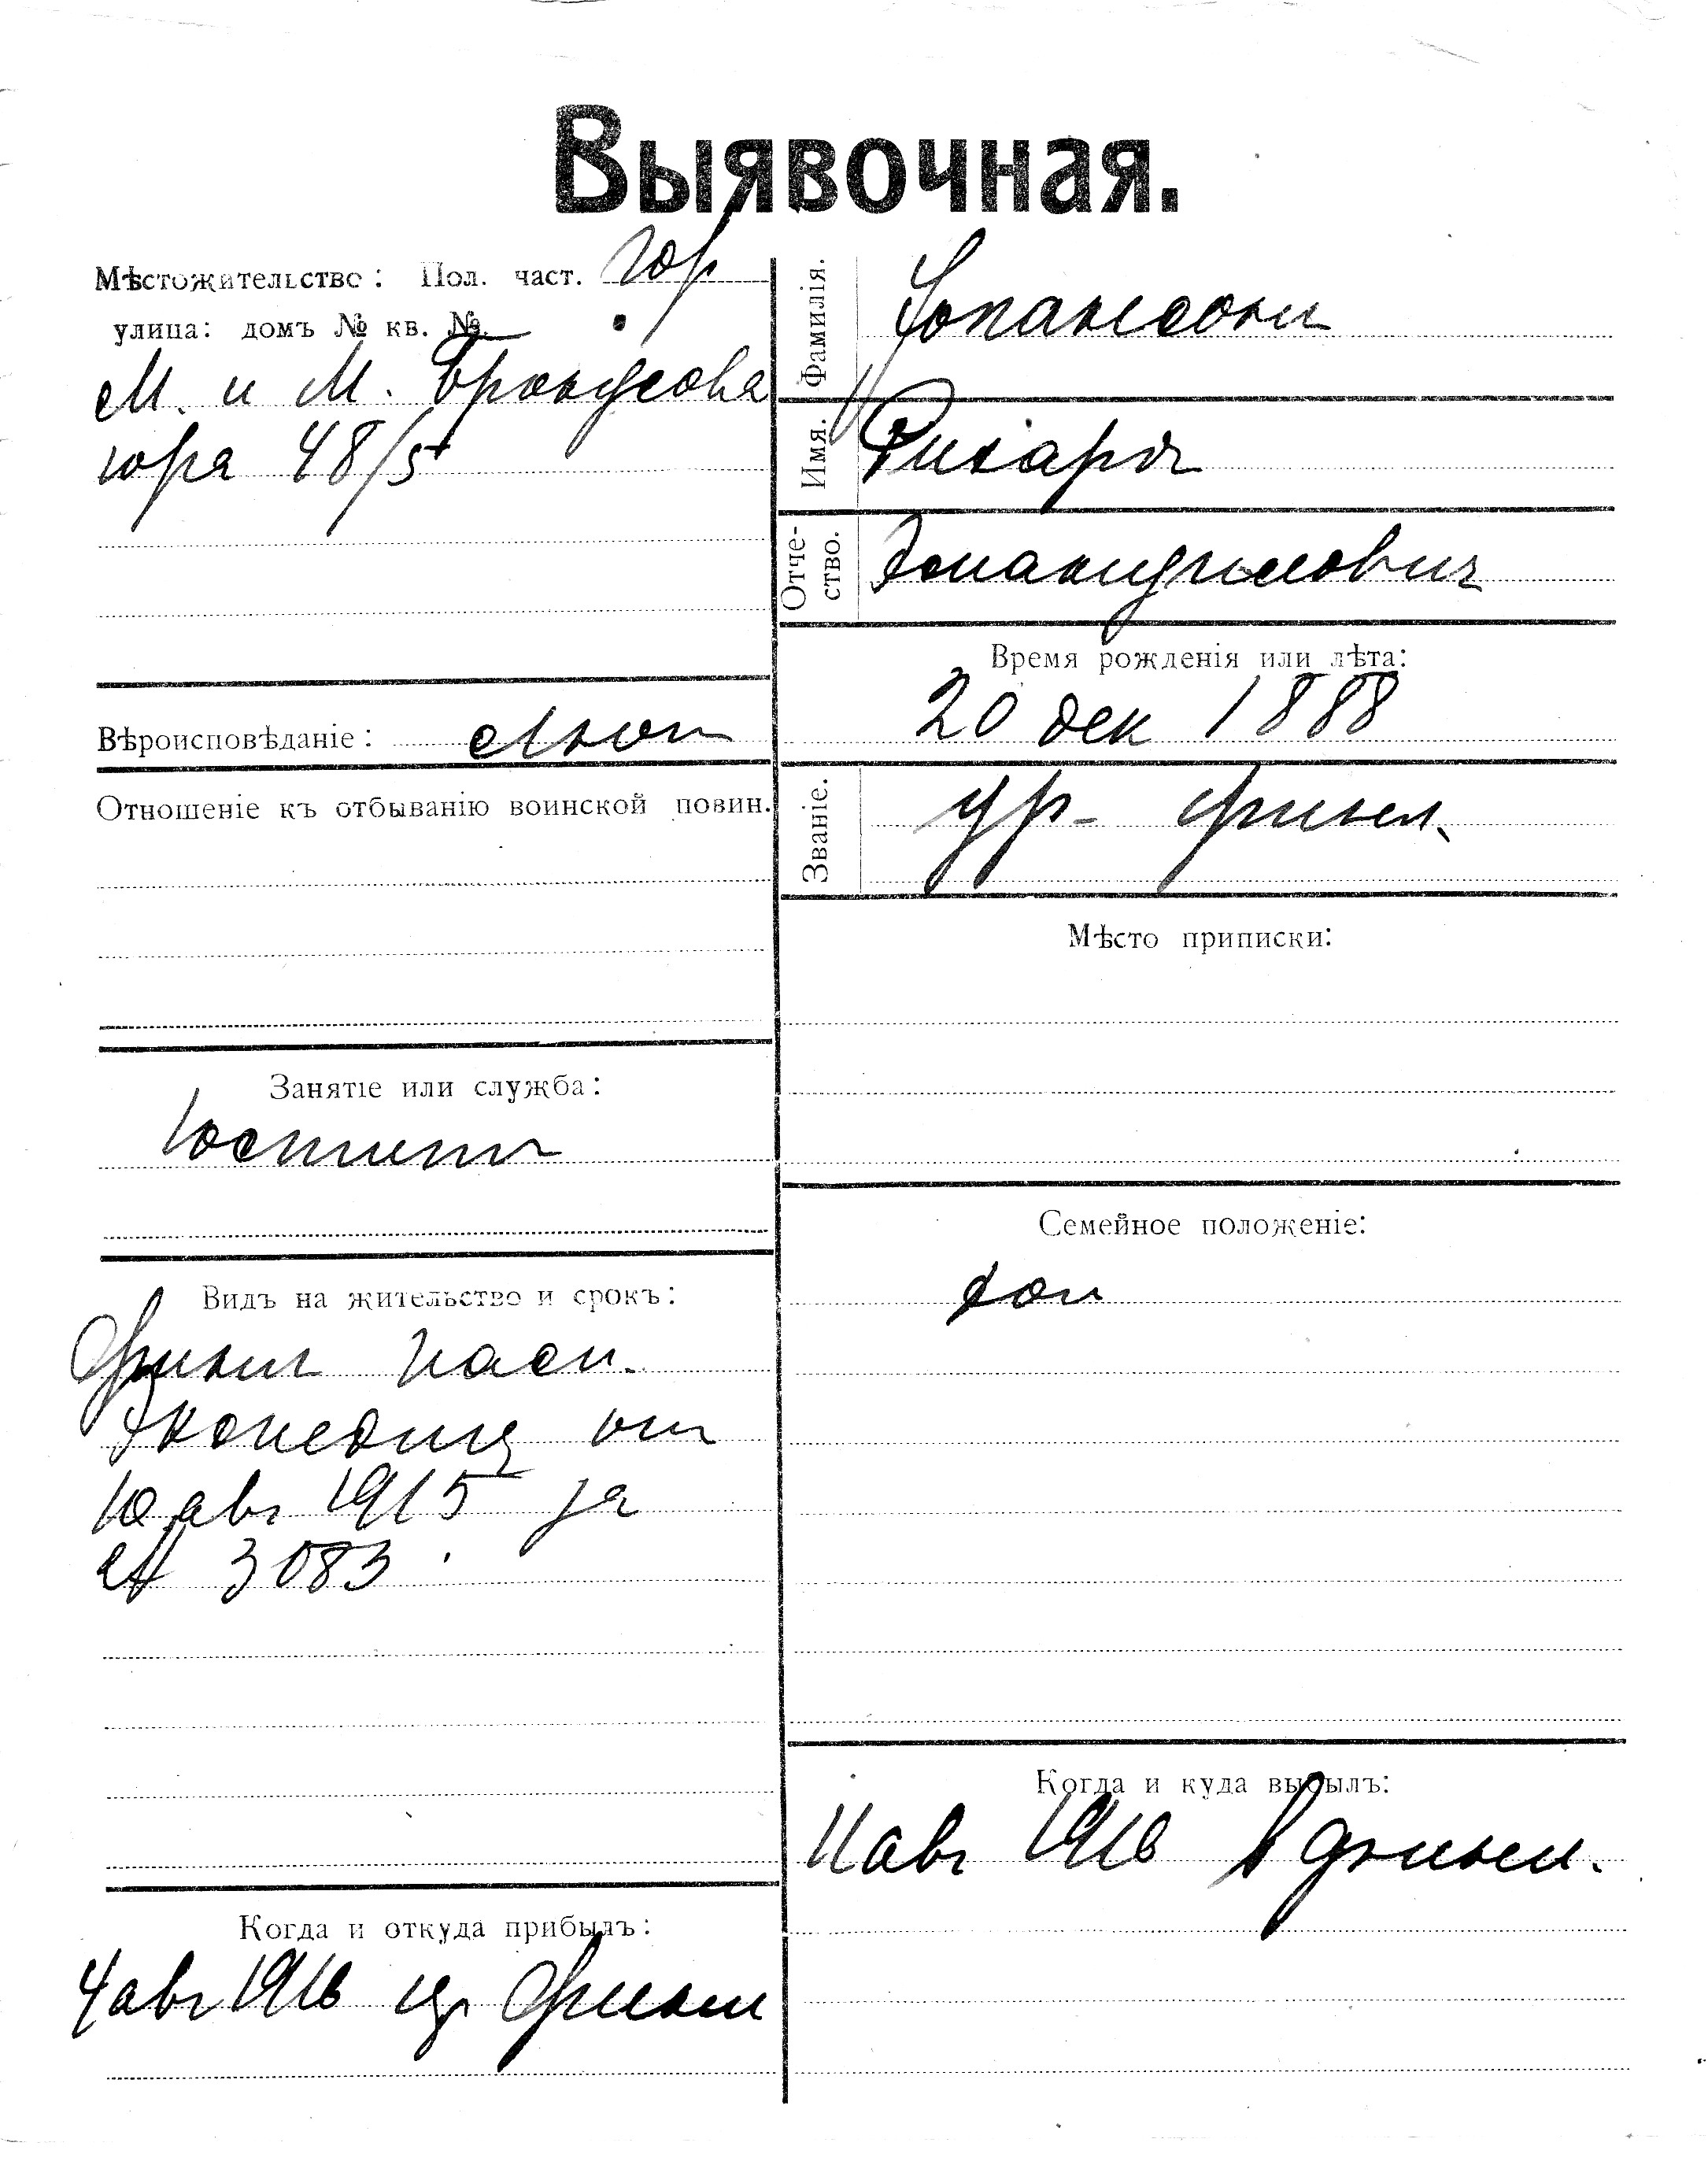 Выявочная.
Мѣстожительство: Пол. част. Гор
улица: домъ № кв. №
М. и М.
гора 48/5
Вѣроисповѣданіе: Лют
Отношеніе къ отбыванію воинской повин.
Занятіе или служба:
Видъ на жительство и срокъ:
Финл пасп.
Экспедиц от
10 авг 1915 за
№ 3083
Когда и откуда прибылъ:
4 авг 1916 из Финл
Фамилія.
Имя. Рихард
Отчество.
Время рожденія или лѣта:
20 дек 1888
Званіе. ур. финл.
Мѣсто приписки:
Семейное положеніе:
хол
Когда и куда выбылъ:
11 авг 1916 в Финл.